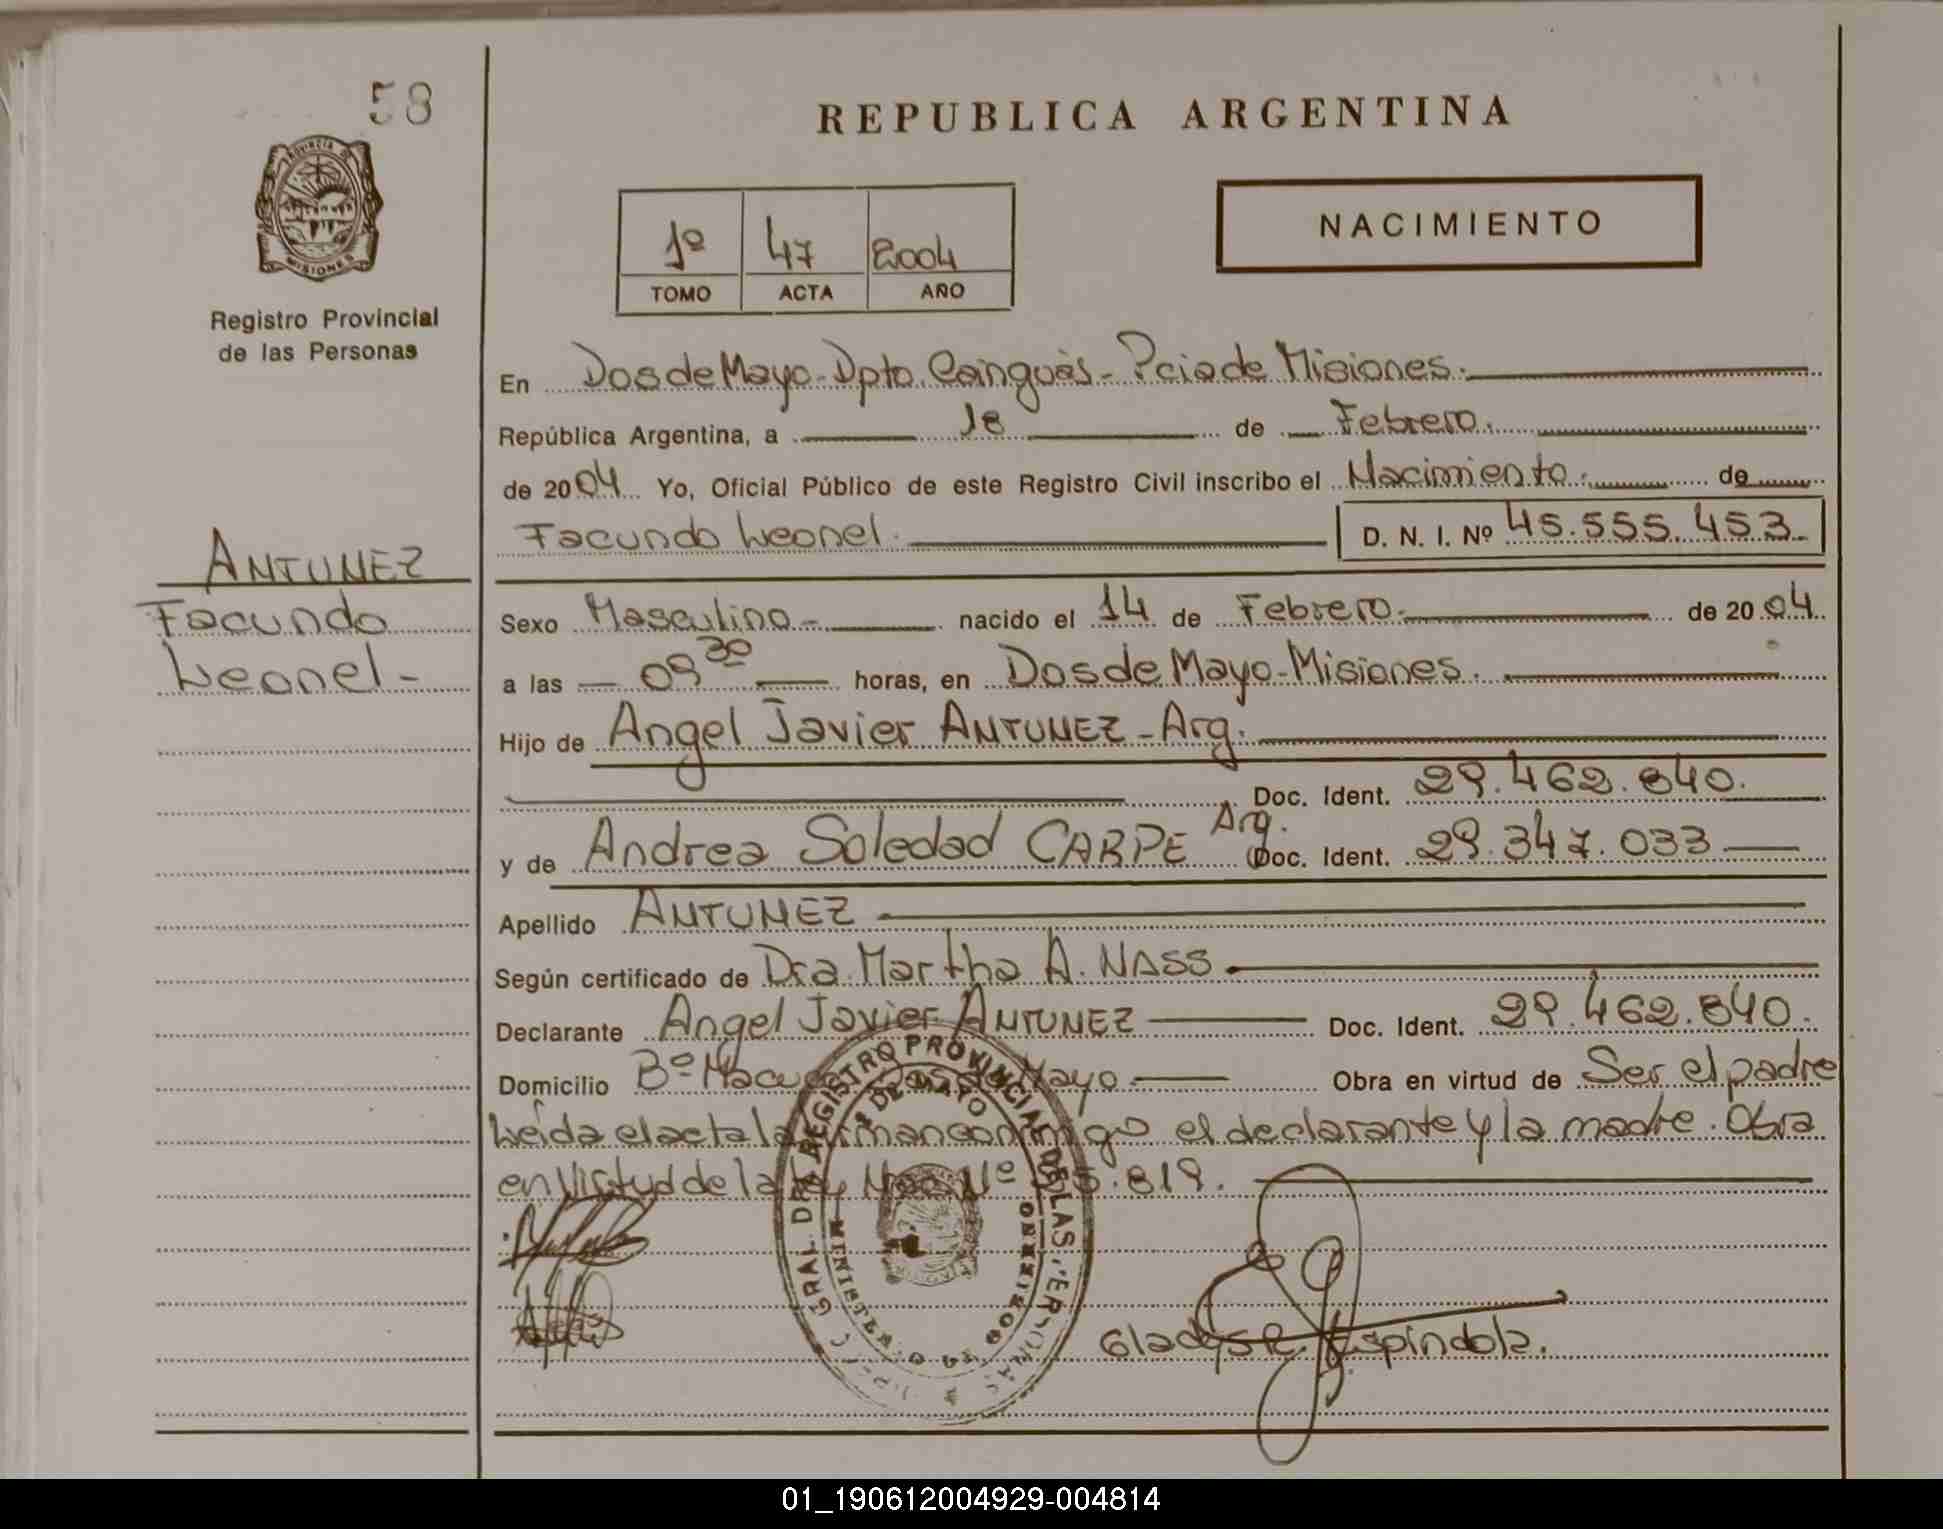 58
REPUBLICA ARGENTINA
PROVINCIA DE
MISIONES
Registro Provincial
de las Personas
1º 47 2004
TOMO ACTA AÑO
NACIMIENTO
En Dos de Mayo - Dpto. Cainguás - Pcia de Misiones.
República Argentina, a 18 de Febrero.
de 2004 Yo, Oficial Público de este Registro Civil inscribo el Nacimiento. de
Facundo Leonel. D. N. I. Nº 45.555.453.
ANTUNEZ
Facundo
Leonel -
Sexo Masculino - nacido el 14 de Febrero. de 2004
a las 09 30 horas, en Dos de Mayo - Misiones.
Hijo de Angel Javier ANTUNEZ - Arg.
Doc. Ident. 29.462.840.
y de Andrea Soledad CARPE Arg. Doc. Ident. 29.347.033
Apellido ANTUNEZ
Según certificado de Dra. Martha A. NASS
Declarante Angel Javier ANTUNEZ Doc. Ident. 29.462.840.
Domicilio Bº Mayo. Obra en virtud de Ser el padre
Leída el acta la firman conmigo el declarante y la madre. Obra
en Virtud de la Ley Nº .819.
REGISTRO PROVINCIAL DE LAS
DE MAYO
Gladys R. Espíndola.
01_190612004929-004814